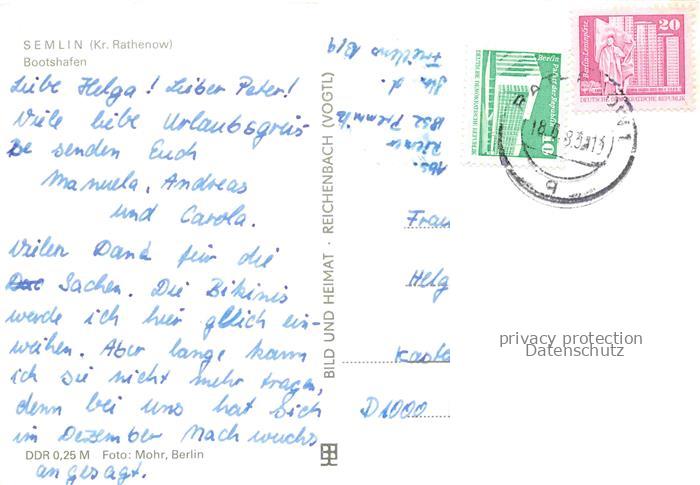 SEMLIN (Kr. Rathenow)
Bootshafen
Liebe Helga! Lieber Peter!
Viele liebe Urlaubsgrüs-
se senden Euch
Manuela, Andreas
und Carola.
Vielen Dank für die
Sachen. Die Bikinis
werde ich hier gleich ein-
weihen. Aber lange kann
ich sie nicht mehr tragen,
denn bei uns hat sich
im Dezember Nachwuchs
angesagt.
DDR 0,25 M Foto: Mohr, Berlin
BILD UND HEIMAT · REICHENBACH (VOGTL)
Abs.
Frau
Helg
D1000
privacy protection
Datenschutz
Berlin Palast der Republik
10
DEUTSCHE DEMOKRATISCHE REPUBLIK
Berlin, Leninplatz
20
DEUTSCHE DEMOKRATISCHE REPUBLIK